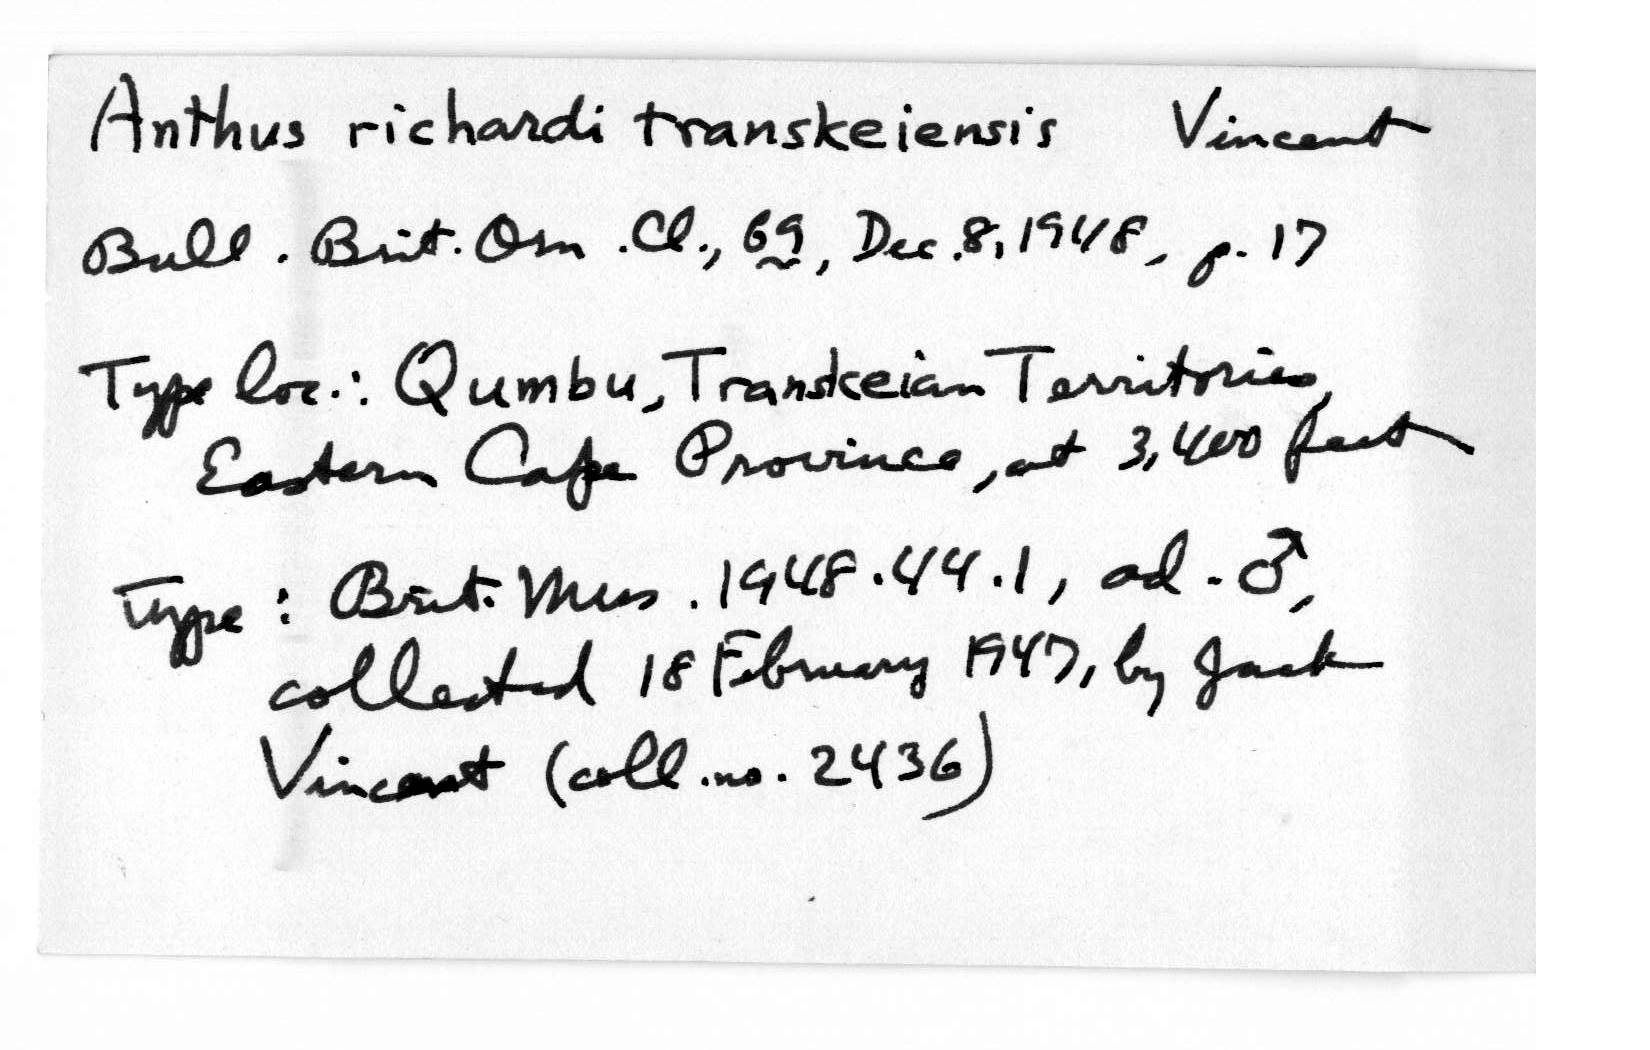 Anthus richardi transkeiensis Vincent
Bull. Brit. Orn. Cl., 69, Dec. 8, 1948, p. 17
Type loc.: Qumbu, Transkeian Territories,
Eastern Cape Province, at 3,400 feet
Type: Brit. Mus. 1948.44.1, ad. ♂,
collected 18 February 1947, by Jack
Vincent (coll. no. 2436)